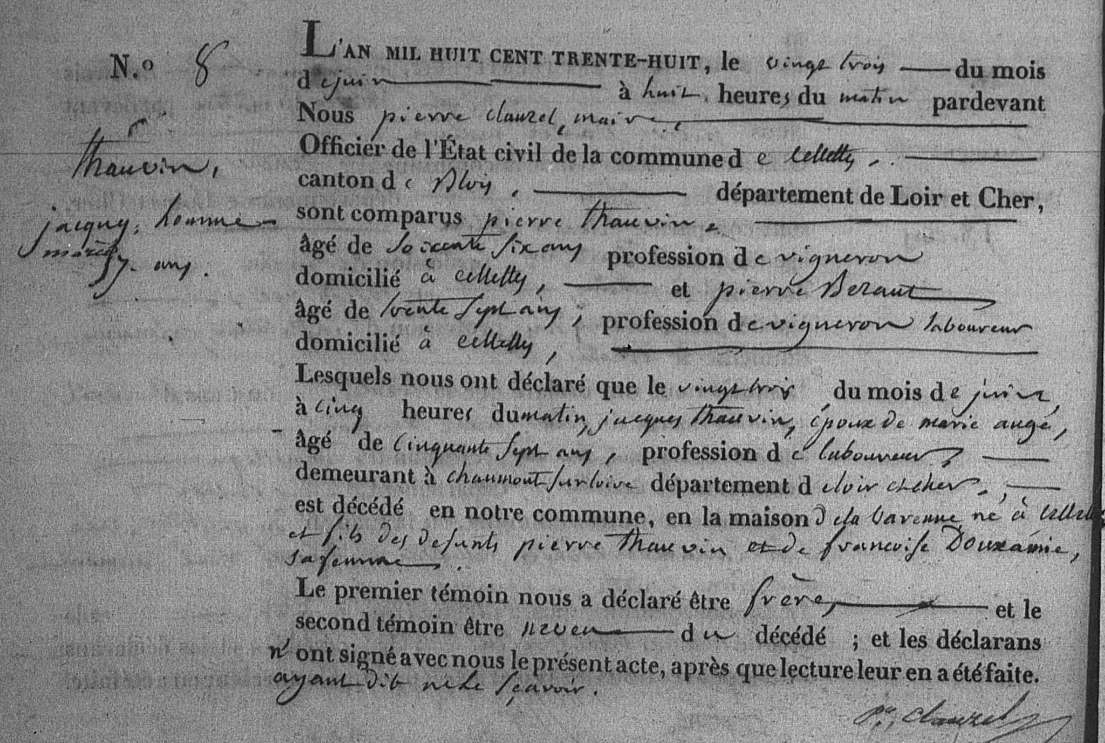 N.o 8
thauvin,
jacques, homme
marié
57 ans.
L'AN MIL HUIT CENT TRENTE-HUIT, le vingt trois du mois
de juin à huit heures du matin pardevant
Nous pierre clauzel, maire,
Officier de l'État civil de la commune de cellettes,
canton de Blois, département de Loir et Cher,
sont comparus pierre thauvin,
âgé de soixante six ans profession de vigneron
domicilié à cellettes, et pierre Beraut
âgé de trente sept ans, profession de vigneron laboureur
domicilié à cellettes,
Lesquels nous ont déclaré que le vingt trois du mois de juin,
à cinq heures du matin, jacques thauvin, époux de marie augé,
âgé de cinquante sept ans, profession de laboureur,
demeurant à chaumont sur loire département de loir et cher,
est décédé en notre commune, en la maison de la varenne né à cellettes
et fils des defunts pierre thauvin et de francoise Douxamie,
sa femme.
Le premier témoin nous a déclaré être frère, et le
second témoin être neveu du décédé ; et les déclarans
n'ont signé avec nous le présent acte, après que lecture leur en a été faite.
ayant dit ne le sçavoir.
pre. clauzel